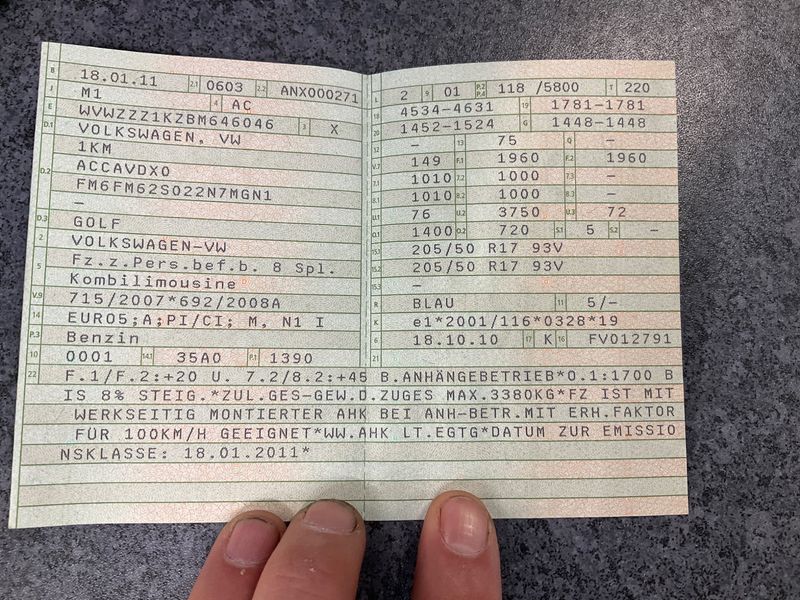 B 18.01.11 2.1 0603 2.2 ANX000271
J M1 4 AC
E WVWZZZ1KZBM646046 3 X
D.1 VOLKSWAGEN, VW
1KM
D.2 ACCAVDX0
FM6FM62S022N7MGN1
—
D.3 GOLF
2 VOLKSWAGEN-VW
5 Fz.z.Pers.bef.b. 8 Spl.
Kombilimousine
V.9 715/2007*692/2008A
14 EURO5;A;PI/CI; M, N1 I
P.3 Benzin
10 0001 14.1 35A0 P.1 1390
L 2 9 01 P.2 P.4 118 /5800 T 220
18 4534-4631 19 1781-1781
20 1452-1524 G 1448-1448
12 — 13 75 Q —
V.7 149 F.1 1960 F.2 1960
7.1 1010 7.2 1000 7.3 —
8.1 1010 8.2 1000 8.3 —
U.1 76 U.2 3750 U.3 72
O.1 1400 O.2 720 S.1 5 S.2 —
15.1 205/50 R17 93V
15.2 205/50 R17 93V
15.3 —
R BLAU 11 5/-
K e1*2001/116*0328*19
6 18.10.10 17 K 16 FV012791
21
22 F.1/F.2:+20 U. 7.2/8.2:+45 B.ANHÄNGEBETRIEB*O.1:1700 B
IS 8% STEIG.*ZUL.GES-GEW.D.ZUGES MAX.3380KG*FZ IST MIT
WERKSEITIG MONTIERTER AHK BEI ANH-BETR.MIT ERH.FAKTOR
FÜR 100KM/H GEEIGNET*WW.AHK LT.EGTG*DATUM ZUR EMISSIO
NSKLASSE: 18.01.2011*